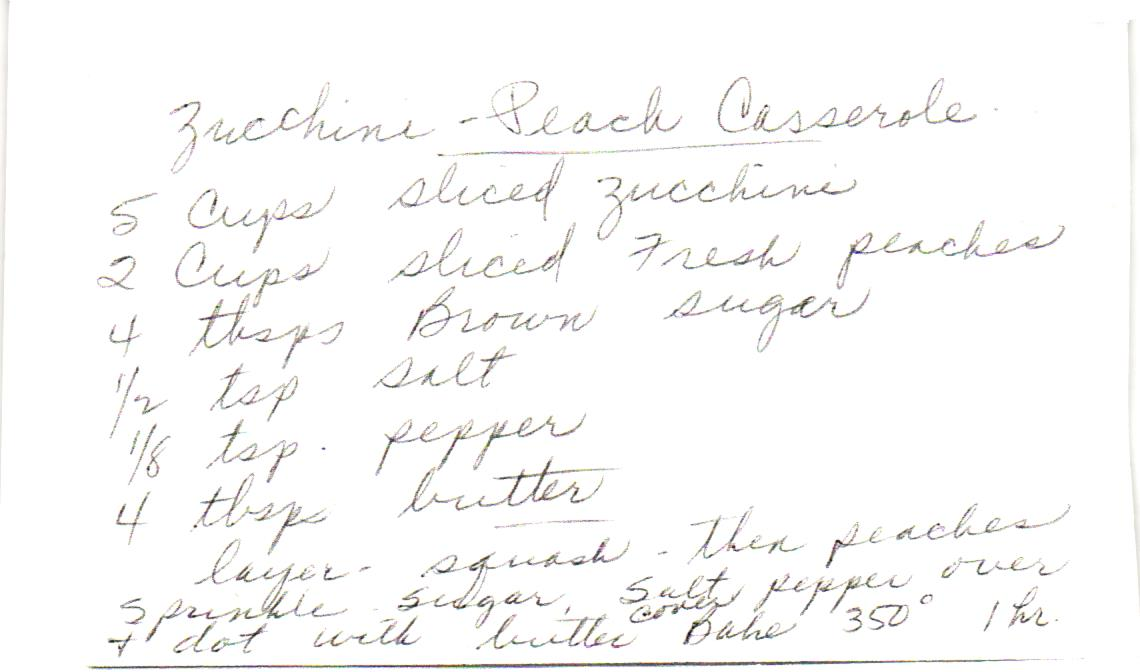 Zucchini - Peach Casserole
5 Cups sliced zucchini
2 Cups sliced Fresh peaches
4 tbsps Brown sugar
1/2 tsp salt
1/8 tsp. pepper
4 tbsps butter
layer - squash - then peaches
Sprinkle sugar, salt pepper over
cover
+ dot with butter Bake 350° 1 hr.